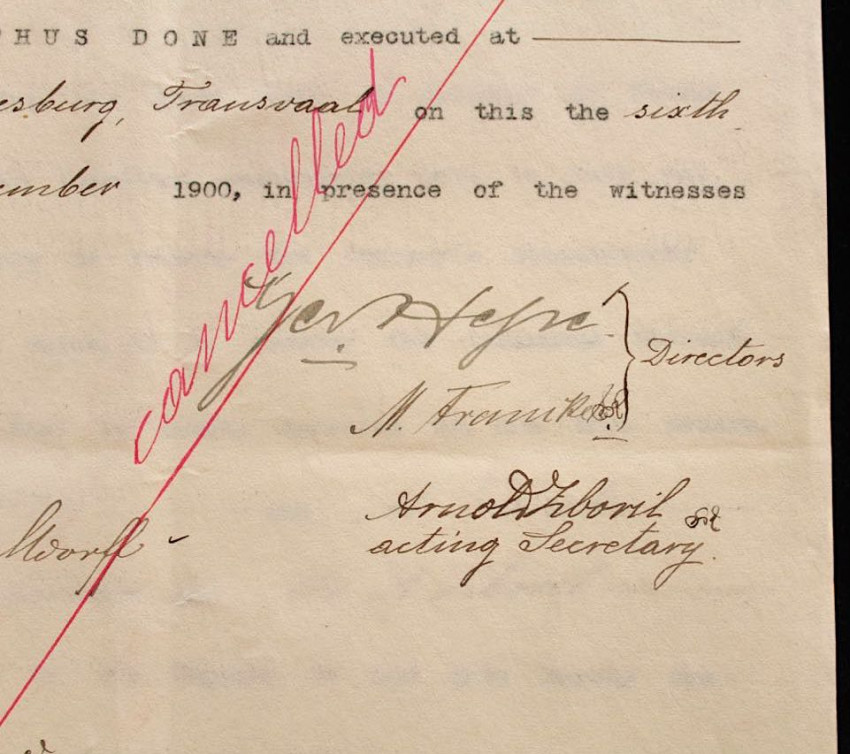 HUS DONE and executed at
esburg, Transvaal on this the sixth
ember 1900, in presence of the witnesses
cancelled
Directors
M.
Arnold Zboril
acting Secretary.